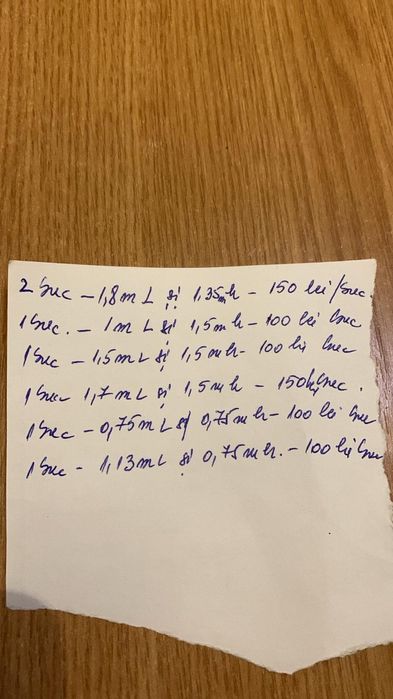 2 buc - 1,8 m L și 1,35 m h - 150 lei/buc.
1 buc. - 1 m L și 1,5 m h - 100 lei buc
1 buc - 1,5 m L și 1,5 m h - 100 lei buc
1 buc 1,7 m L și 1,5 m h - 150 lei buc.
1 buc - 0,75 m L și 0,75 m h - 100 lei buc
1 buc - 1,13 m L și 0,75 m h. - 100 lei buc